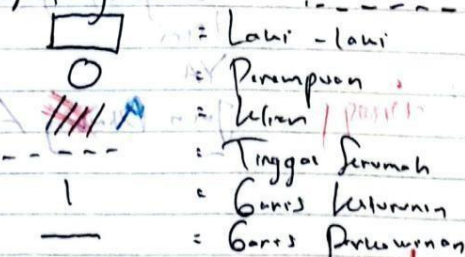 = Laki - laki
= Perempuan
= Klien / pasien
: Tinggal Serumah
= Garis keturunan
: Garis Perkawinan